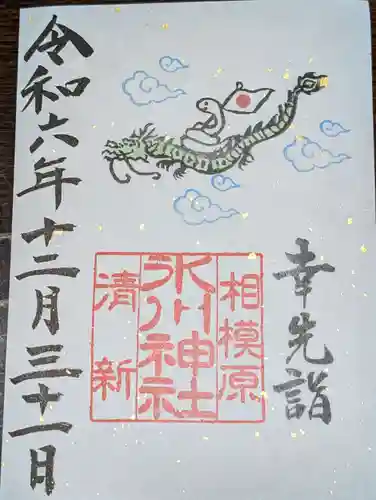 幸先詣
相模原
氷川神社
清新
令和六年十二月三十一日